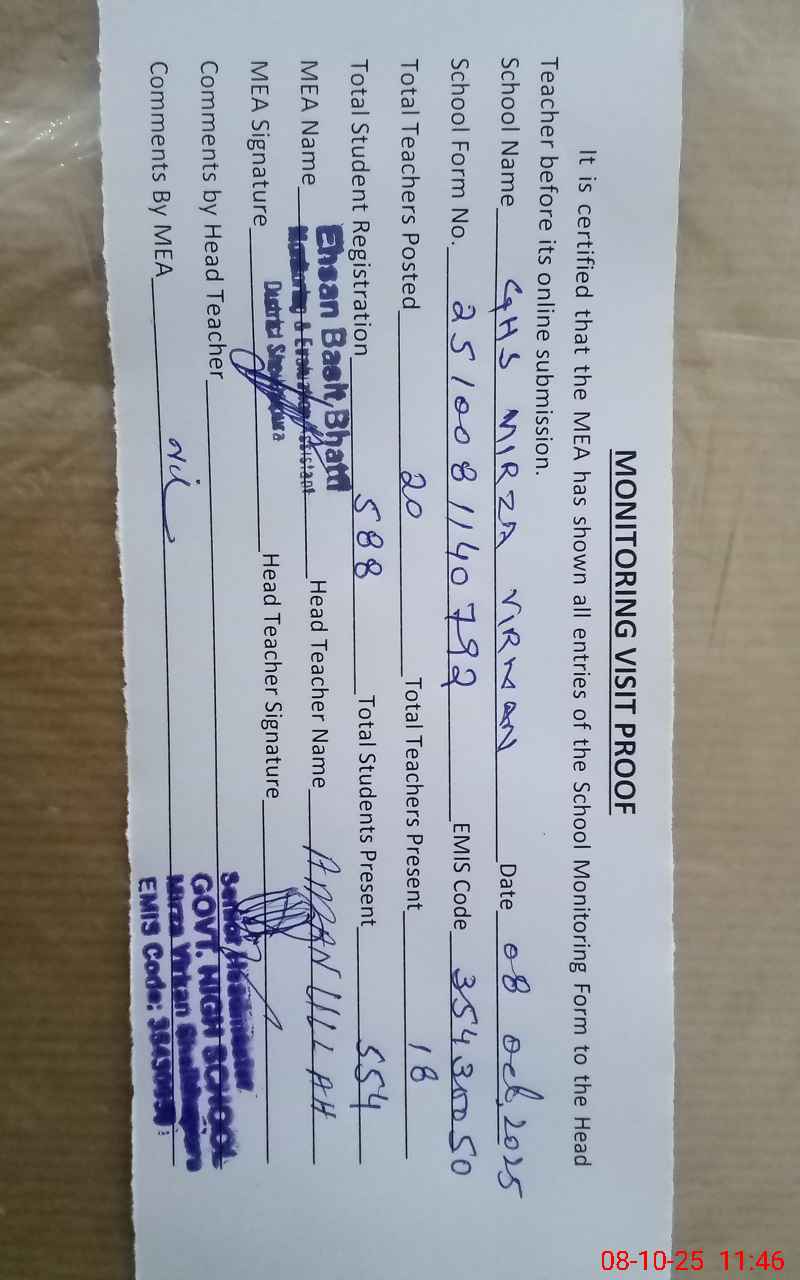 MONITORING VISIT PROOF
It is certified that the MEA has shown all entries of the School Monitoring Form to the Head
Teacher before its online submission.
School Name GHS MIRZA VIRMAN Date 08 Oct, 2025
School Form No. 2510081140792 EMIS Code 35430050
Total Teachers Posted 20 Total Teachers Present 18
Total Student Registration 588 Total Students Present 554
MEA Name Ehsan Bhatti Head Teacher Name
Monitoring & Assistant
District
MEA Signature Head Teacher Signature
Comments by Head Teacher
Comments By MEA Nil
Senior Headmaster
GOVT. HIGH SCHOOL
Mirza Virkan
EMIS Code:
08-10-25 11:46